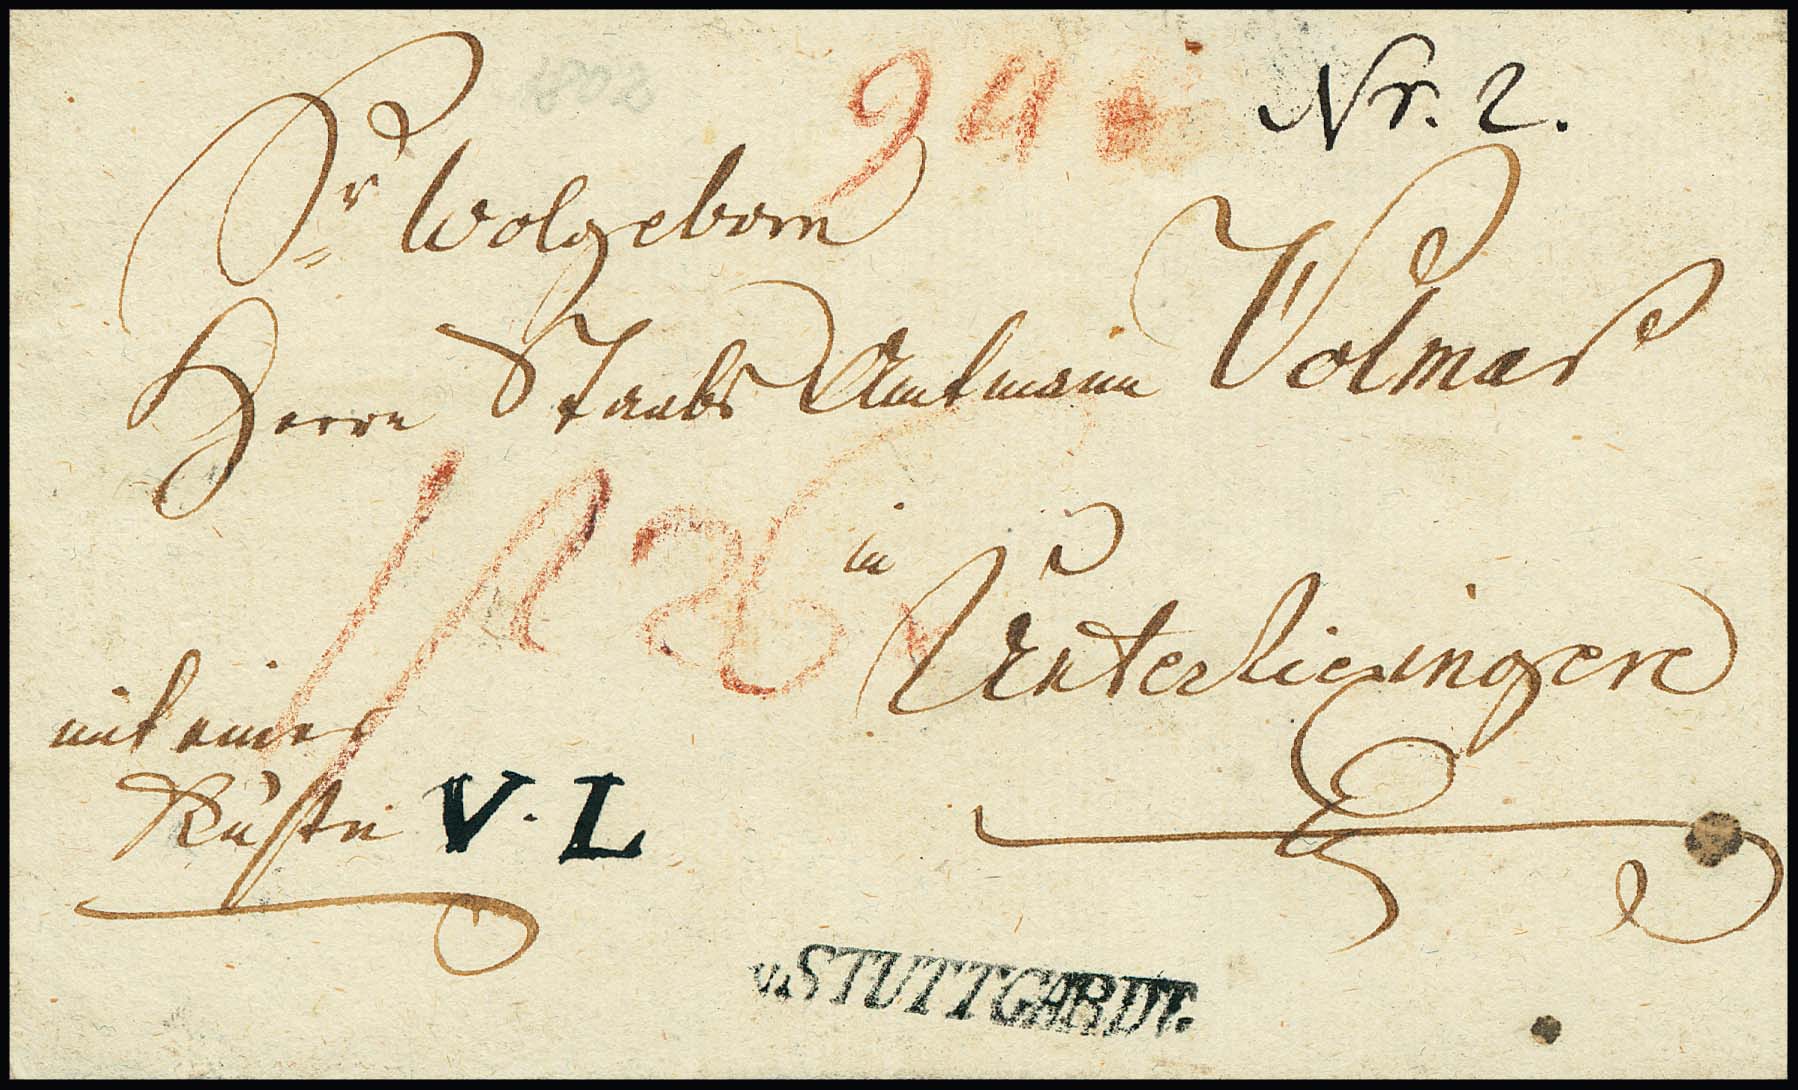 1802
Nr. 2.
Sr Wolgeborn
Herrn Staabs Amtmann Volmar
in
Unterriexingen
mit einer
Kiste V. L
v. STUTTGARDT.